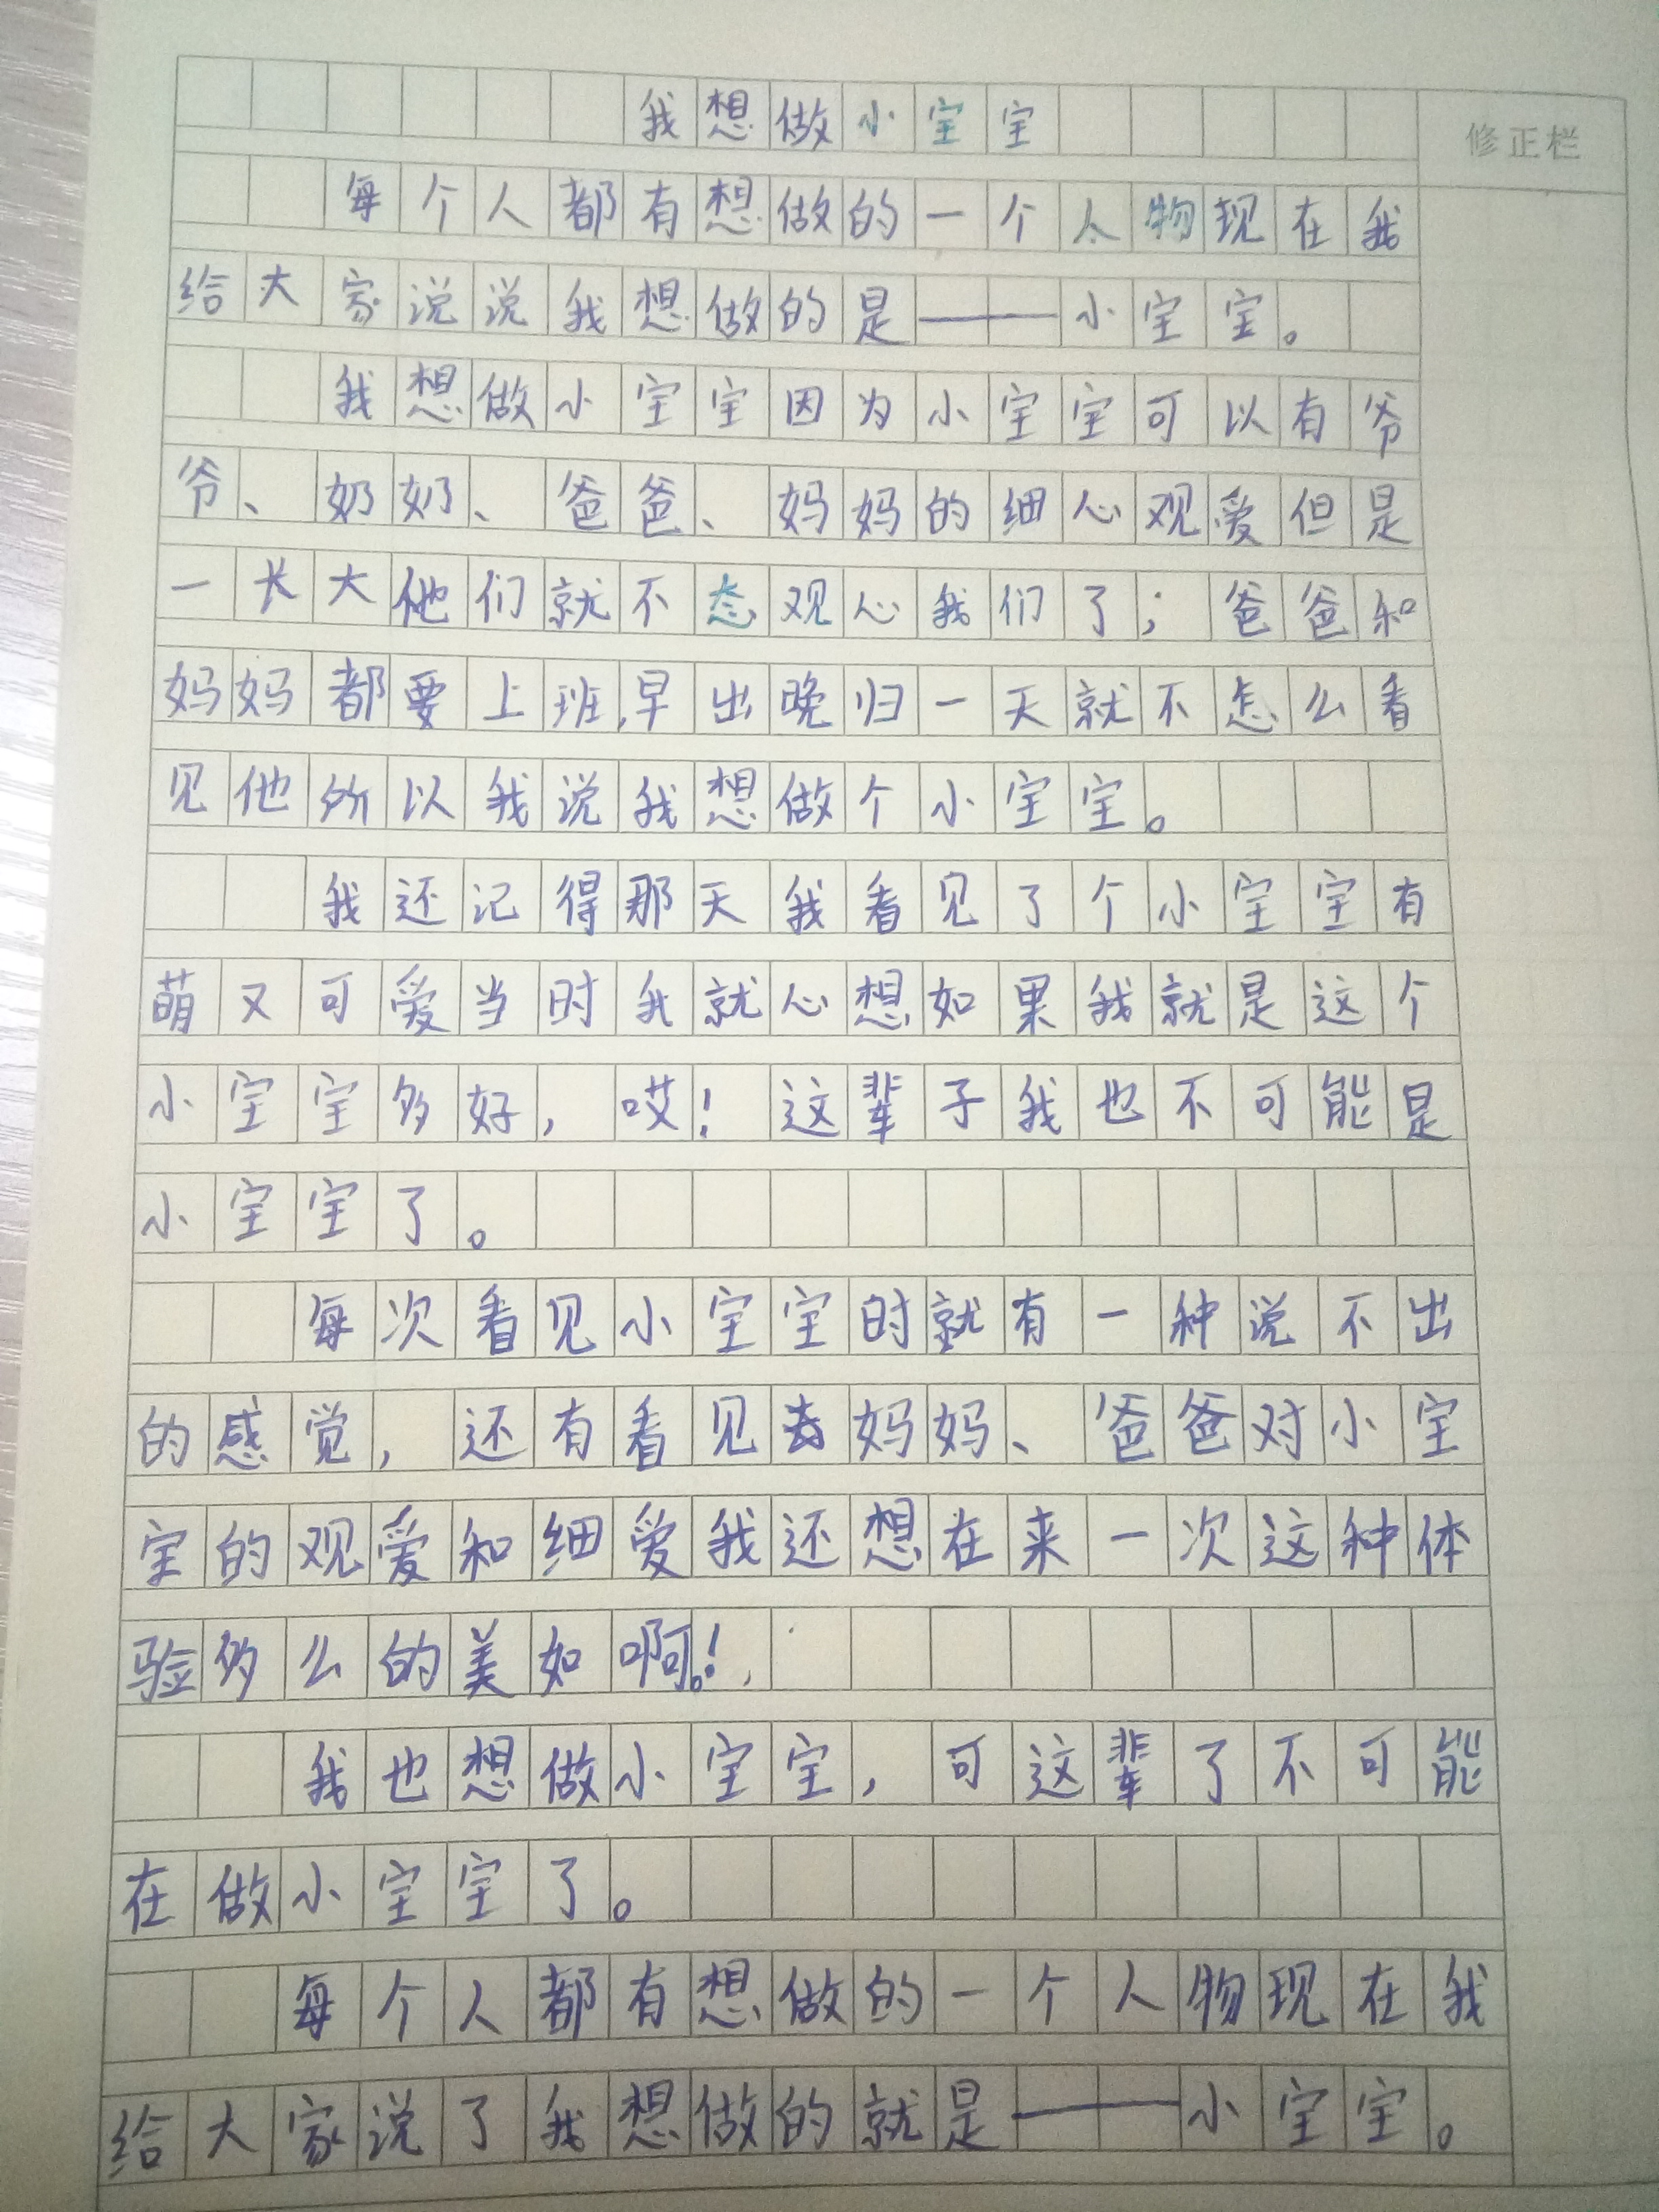 我想做小宝宝
修正栏
每个人都有想做的一个人物现在我
给大家说说我想做的是——小宝宝。
我想做小宝宝因为小宝宝可以有爷
爷、奶奶、爸爸、妈妈的细心观爱但是
一长大他们就不态观心我们了；爸爸和
妈妈都要上班,早出晚归一天就不怎么看
见他所以我说我想做个小宝宝。
我还记得那天我看见了个小宝宝有
萌又可爱当时我就心想如果我就是这个
小宝宝多好，哎！这辈子我也不可能是
小宝宝了。
每次看见小宝宝时就有一种说不出
的感觉，还有看见去妈妈、爸爸对小宝
宝的观爱和细爱我还想在来一次这种体
验多么的美如啊！
我也想做小宝宝，可这辈了不可能
在做小宝宝了。
每个人都有想做的一个人物现在我
给大家说了我想做的就是——小宝宝。